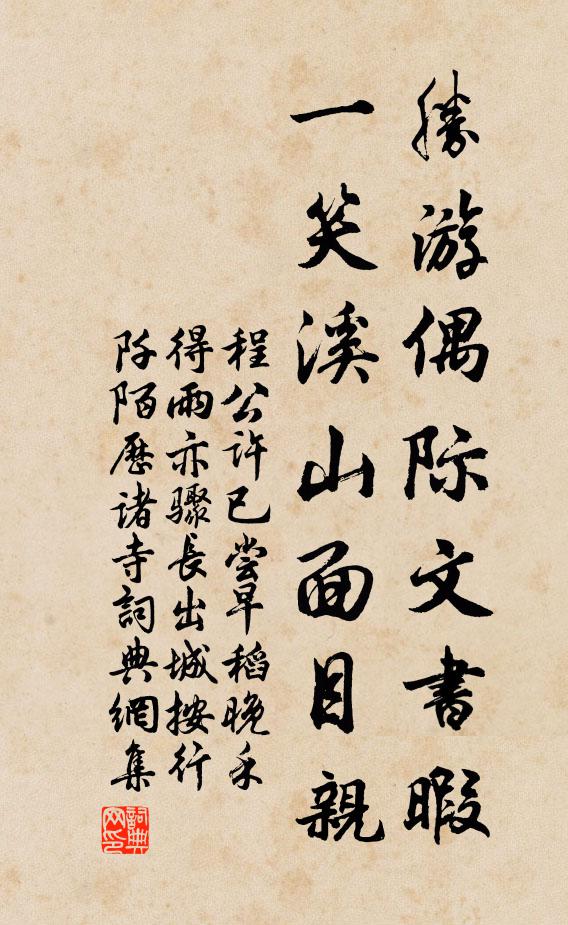 勝游偶际文書暇
一笑溪山面目親
程公許已嘗早稻晚禾
得雨亦驟長出城按行
阡陌歷諸寺詞典網集
詞典網印